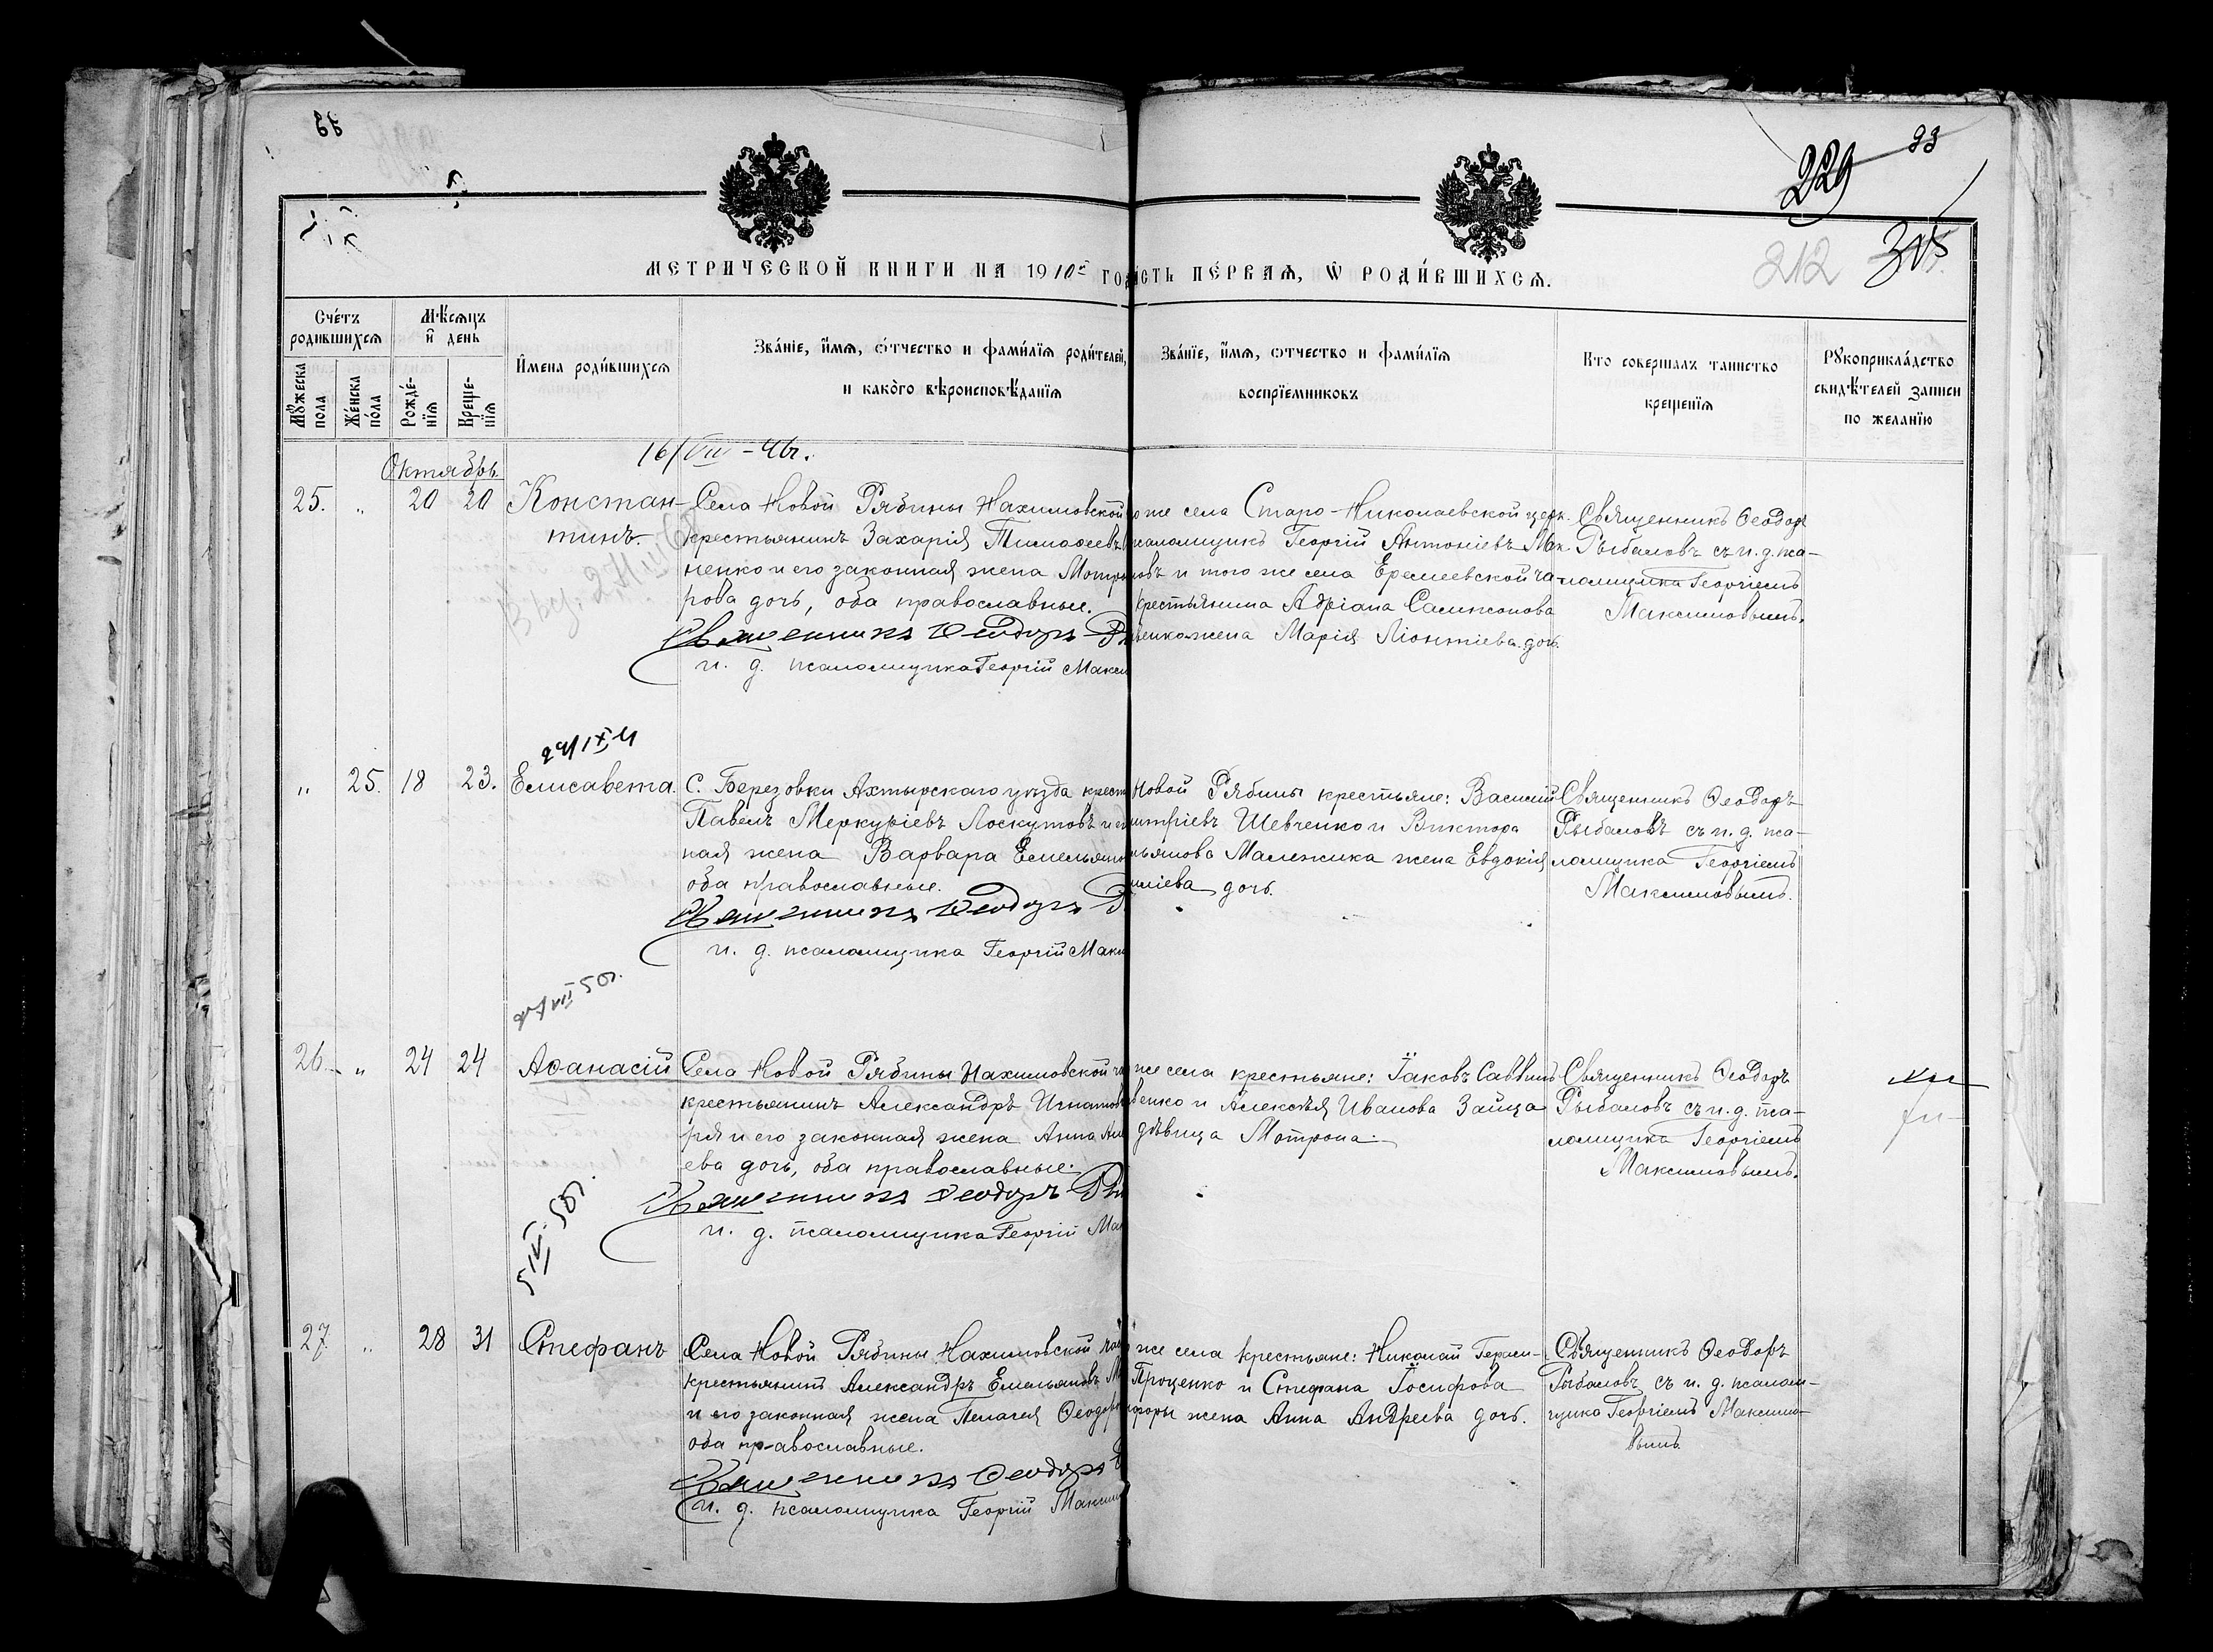 93
229
212
315
МЕТРИЧЕСКОЙ КНИГИ НА 1910й ГОДЪ
ЧАСТЬ ПЕ́РВАѦ, Ѡ РОДИ́ВШИХСѦ.
Сче́тъ родившихсѧ
Мѣ́сѧцъ и҆ день
Мꙋ́жеска пола
Же́нска по́ла
Рожде́-нїѧ
Креще-нїѧ
И҆мена роди́вшихсѧ
Зва́нїе, и҆́мѧ, ѻ҆́тчество и фами́лїѧ роди́телей,
и како́го вѣроисповѣ́данїѧ
Зва́нїе, и҆́мѧ, ѻтчество и фами́лїѧ
воспрїемниковъ
Кто совершалъ таинство
крещенїѧ
Рꙋкоприкла́дство
свидѣ́телей записи
по желанїю
16/VIII – 46г.
Октябрь
25. „ 20 20 Констан-
тинъ.
Села Новой Рябины Нахимовской
крестьянинъ Захарія Тимоѳеевъ
ненко и его законная жена Мотро
рова дочь, оба православные.
Священникъ Ѳеодоръ Ры
и. д. псаломщика Георгій Макси
о же села Старо-Николаевской церк.
псаломщикъ Георгій Антоніевъ Мак
мовъ и того же села Еремеевской ча-
крестьянина Адріана Самсонова
енко жена Марія Ліонтіева дочь.
Священникъ Ѳеодоръ
Рыбаловъ съ и. д. пса-
ломщика Георгіемъ
Максимовымъ.
„ 25. 18 23. Елисавета.
С. Березовки Ахтырскаго уѣзда крест
Павелъ Меркуріевъ Лоскутовъ и ег
ная жена Варвара Емельяно
оба православные.
Священникъ Ѳеодоръ Р
и. д. псаломщика Георгій Макс
Новой Рябины крестьяне: Василій
митріевъ Шевченко и Виктора
льянова Малежика жена Евдокія
иліева дочь.
Священникъ Ѳеодоръ
Рыбаловъ съ и. д. пса-
ломщика Георгіемъ
Максимовымъ.
VII 50г.
26. „ 24 24 Аѳанасій
Села Новой Рябины Нахимовской ча
крестьянинъ Александръ Игнатов
ря и его законная жена Анна Ал
ева дочь, оба православные.
Священникъ Ѳеодоръ Ры
и. д. псаломщика Георгій Мак
же села крестьяне: Іаковъ Саввинъ
венко и Алексѣя Иванова Зайца
дѣвица Мотрона.
Священникъ Ѳеодоръ
Рыбаловъ съ и. д. пса-
ломщика Георгіемъ
Максимовымъ.
27 „ 28 31 Стефанъ
Села Новой Рябины Нахимовской час
крестьянинъ Александръ Емельяновъ М
и его законная жена Пелагея Ѳеодоро
оба православные.
Священникъ Ѳеодоръ
и. д. псаломщика Георгій Макси
же села крестьяне: Николай Гераси-
Проценко и Стефана Іосифова
форы жена Анна Андреева дочь.
Священникъ Ѳеодоръ
Рыбаловъ съ и. д. псалом-
щика Георгіемъ Максимо-
вымъ.